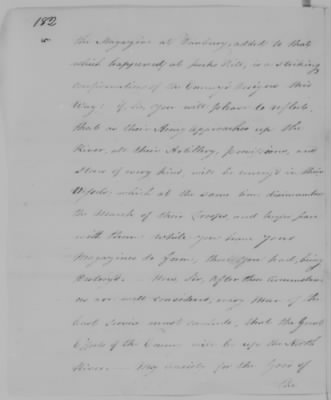 182
the Magazine at Danbury, added to that
which happened at Peeks Kill, is a striking
confirmation of the Enemy's designs this
Way; if, Sir, you will please to reflect,
that as their Army approaches up the
River, all their Artillery, provisions, and
Stores of every kind, will be in their
Vessels, which at the same time
the March of their Troops, and keeps pace
with them. While you leave your
Magazines so far, being
destroyed. Now, Sir, after these circumstances
are well considered, every Man of the
least Service must, that the Great
Efforts of the Enemy will be up the North
River. My anxiety for the good of
the